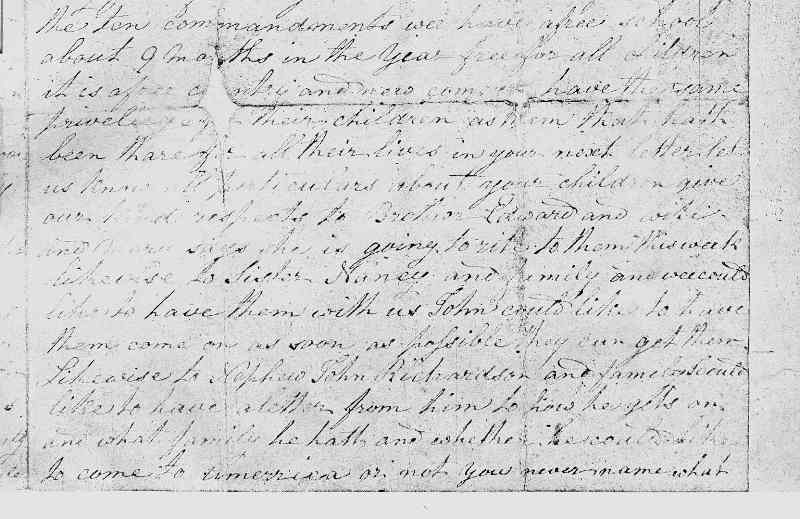 the ten commandments wee have a free school
about 9 months in the year free for all children
it is a free country and new comers have the same
priveliges for their children as them that hath
been thare for all their lives in your next letter let
us know all particulars about your children give
our kind respects to Brother Edward and wife
and Mary says she is going to rite to them this week
likewise to Sister Nancy and family and wee could
like to have them with us John could like to have
them come on as soon as possible they can get them
Likewise to Nephew John Richardson and could
like to have a letter from him to how he gets on
and what family he hath and whether he could like
to come to amerrica or not you never name what